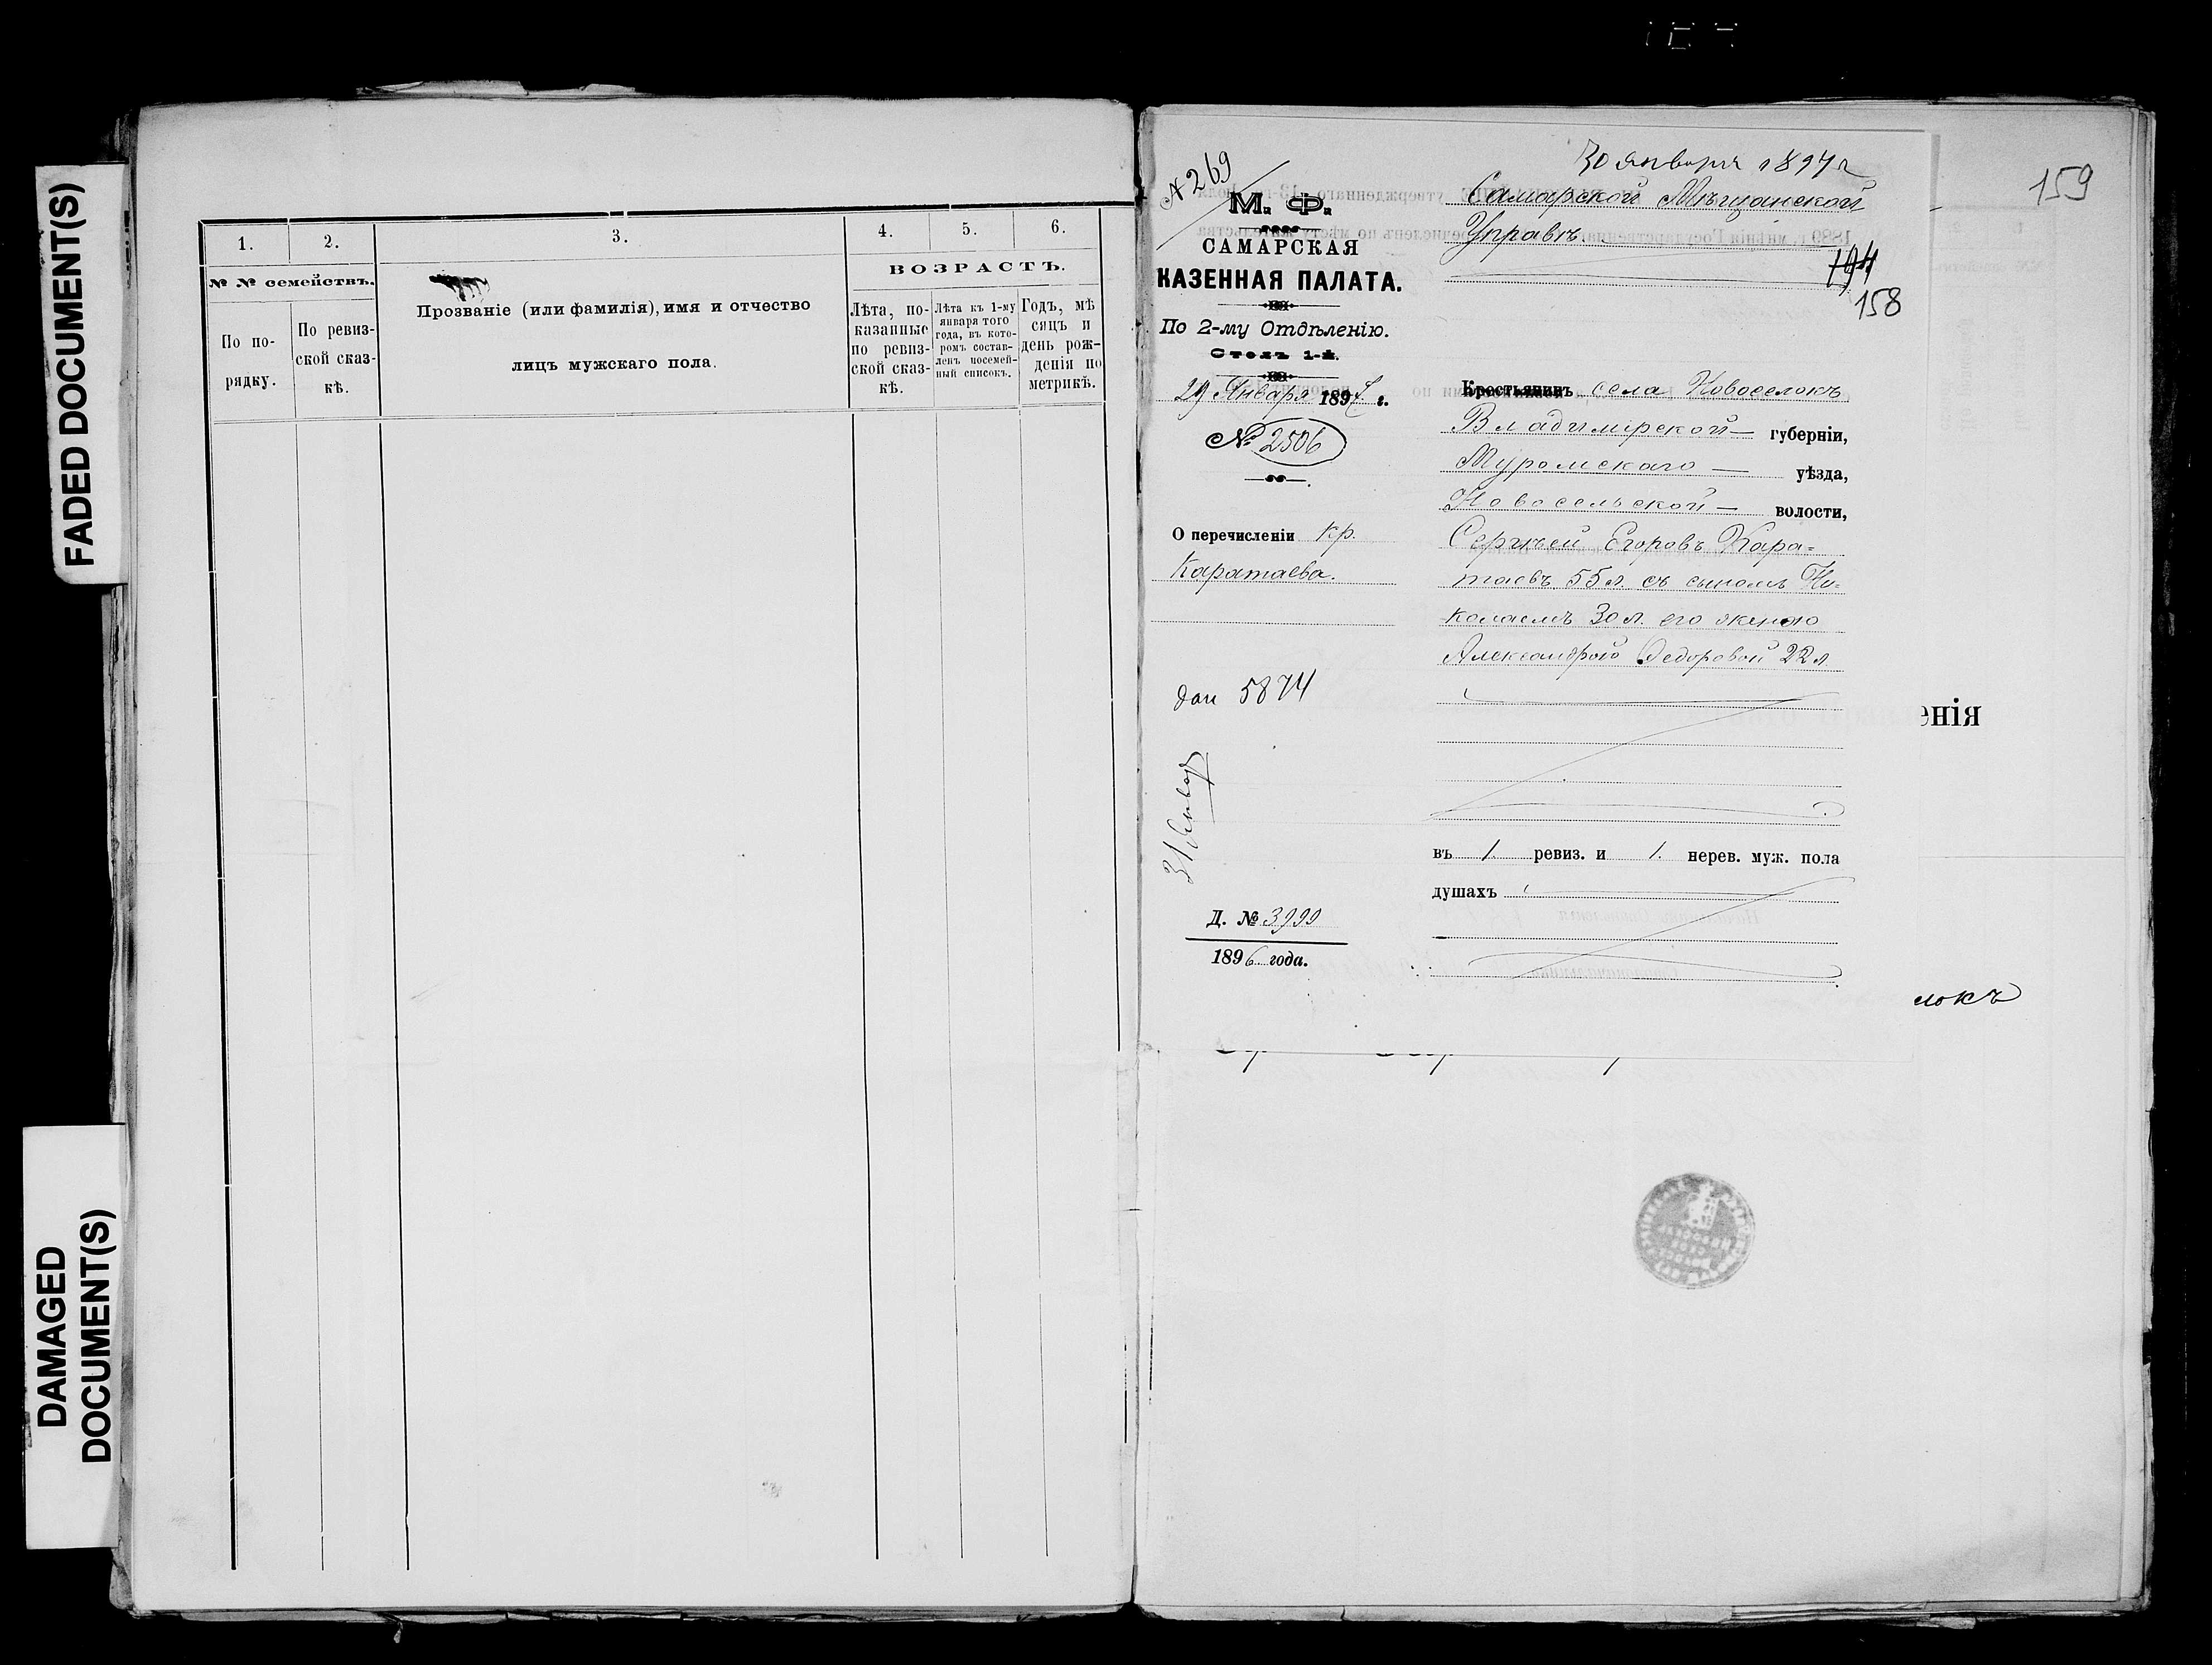 FADED DOCUMENT(S)
DAMAGED
DOCUMENT(S)
1.
2.
3.
4.
5.
6.
№ № семействъ.
ВОЗРАСТЪ.
По по-
рядку.
По ревиз-
ской сказ-
кѣ.
Прозваніе (или фамилія), имя и отчество
лицъ мужскаго пола.
Лѣта, по-
казанные
по ревиз-
ской сказ-
кѣ.
Лѣта къ 1-му
января того
года, въ кото-
ромъ состав-
ленъ посемей-
ный списокъ.
Годъ, мѣ
сяцъ и
день рож-
денія по
метрикѣ.
№ 269
М. Ф.
САМАРСКАЯ
КАЗЕННАЯ ПАЛАТА.
По 2-му Отдѣленію.
Столъ 1-й.
29 Января 1897 г.
№ 2506
О перечисленіи кр.
Каратаева.
5874
31 Январ
Д. № 3999
1896 года.
30 января 1897 г
Самарской Мѣщанской
Управѣ.
194
158
159
Крестьянинъ села Новоселокъ
Владимирской губерніи,
Муромскаго уѣзда,
Новосельской волости,
Сергѣй Егоровъ Кара=
таевъ 55 л. съ сыномъ Ни-
колаемъ 30 л. его женою
Александрой Федоровой 22 л
въ 1. ревиз. и 1. нерев. муж. пола
душахъ
енія
локъ